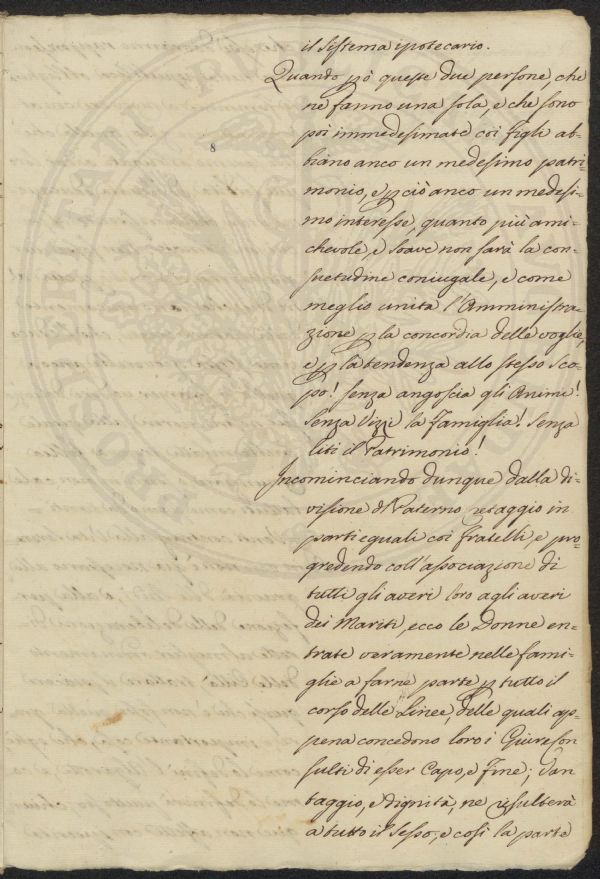 il Sistema ipotecario.
Quando p.ò queste due persone, che
ne fanno una sola, e che sono
8
poi immedesimate coi figli ab-
biano anco un medesimo patri-
monio, e p ciò anco un medesi-
mo interesse, quanto più ami-
chevole, e soave non sarà la con-
suetudine coniugale, e come
meglio unita l'Amministra-
zione p la concordia delle voglie,
e p la tendenza allo stesso sco-
po! senza angoscia gli Animi!
senza Vizzi la Famiglia! Senza
liti il Patrimonio!
Incominciando dunque dalla di-
visione d Paterno retaggio in
parti eguali coi fratelli, e pro-
gredendo coll'associazione di
tutti gli averi loro agli averi
dei Mariti, ecco le Donne en-
trate veramente nelle fami-
glie a farne parte p tutto il
corso delle Linee, delle quali ap-
pena concedono loro i Giurecon
sulti di esser Capo, e Fine; Van-
taggio, e dignità, ne risulterà
a tutto il sesso, e così la parte